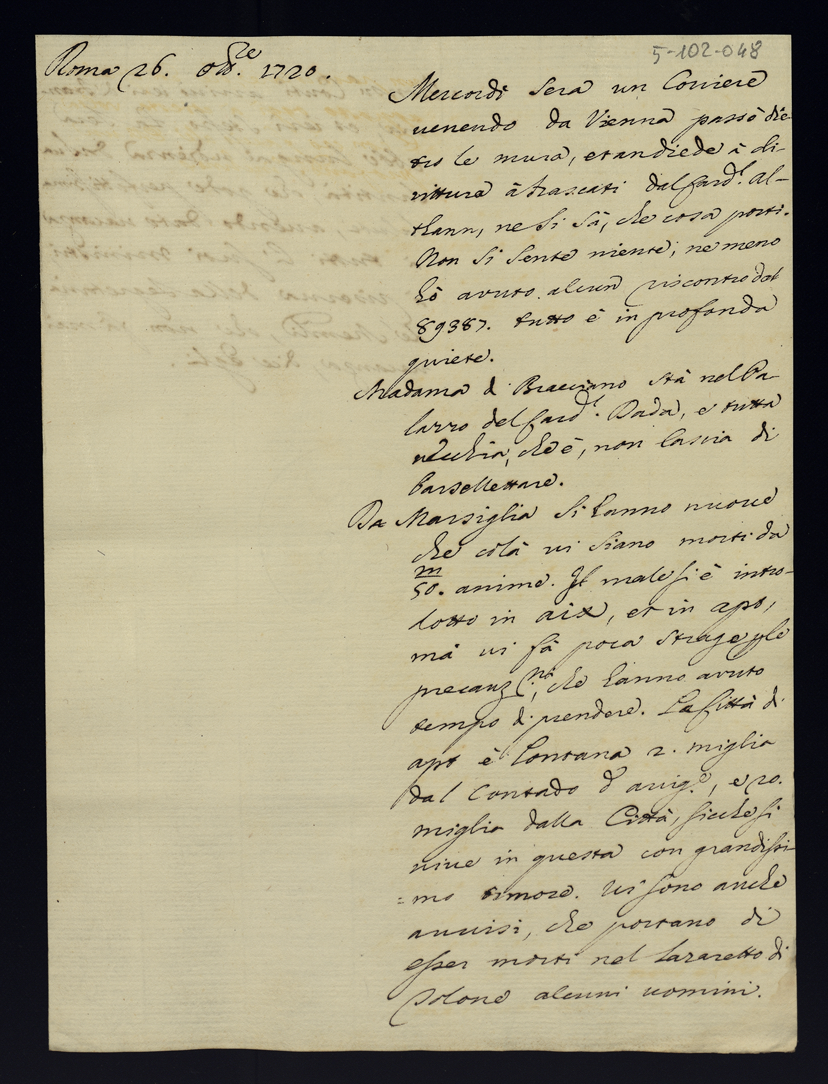 5-102-048
Roma 26. 8bre. 1720.
Mercordì sera un Corriere
venendo da Vienna passò die-
tro le mura, et andiede à di-
rittura à Frascati dal Card.l Al-
thann, ne si sà, che cosa porti.
Non si sente niente, ne meno
hò avuto alcun riscontro dal
89387. tutto è in profonda
quiete.
Madama di Bracciano stà nel Pa-
lazzo del Card.l Dada, e tutta
vecchia, che è, non lascia di
barzellettare.
Da Marsiglia si hanno nuove
che colà vi siano morti da
m
50. anime. Il male si è intro-
dotto in aix, et in apt,
mà vi fà poca strage p le
precauz.ni, che hanno avuto
tempo di prendere. La Città di
apt è lontana 2. miglia
dal Contado d'avig.e, e 20.
miglia dalla Città, sicche si
vive in questa con grandissi-
=mo timore. Vi sono anche
avvisi, che portano di
esser morti nel Lazaretto di
Tolone alcuni uomini.